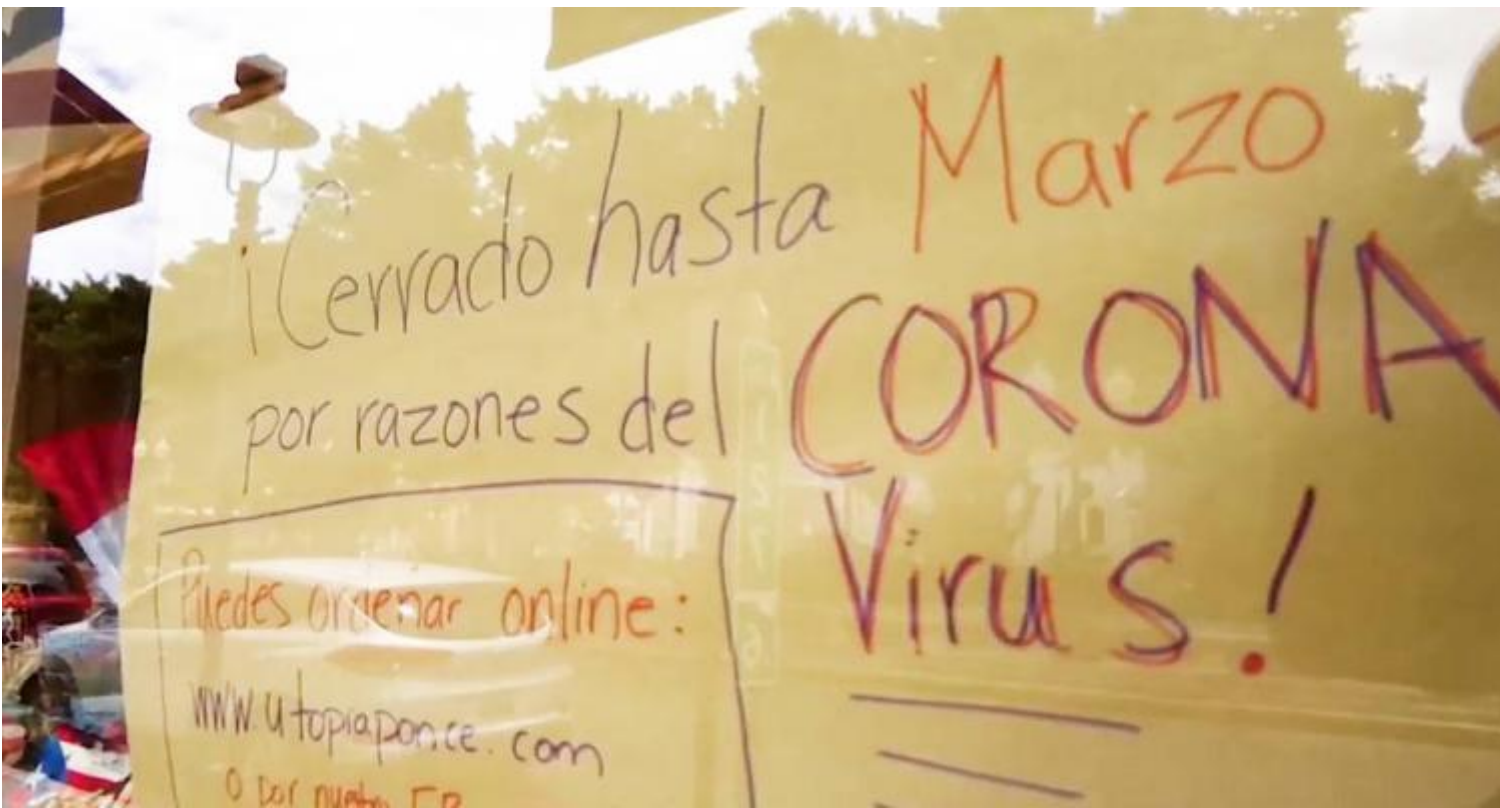 ¡Cerrado hasta Marzo
por razones del CORONA
Virus!
Puedes ordenar online:
www.utopiaponce.com
O por nuetro FB